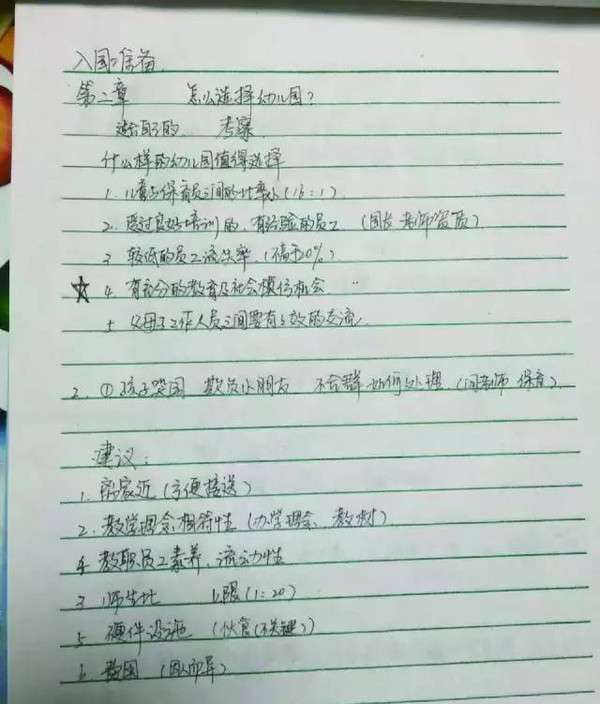 入园准备
第二章 怎么选择幼儿园？
适合自己的 考察
什么样的幼儿园值得选择
1. 儿童与保育员之间的比率好(16:1)
2. 受过良好培训的，有经验的员工 (园长 老师资质)
3 较低的员工流失率 (不高于20%)
☆ 4. 有充分的教育及社会模仿机会
5. 父母与工作人员之间要有有效的交流
2. ① 孩子哭闹 欺负小朋友 不合群 如何处理 (问老师 保育)
建议：
1. 离家近 (方便接送)
2. 教学理念相符性 (办学理念、教材)
4 教职员工素养，流动性
3 师生比 上限(1:20)
5. 硬件设施 (伙食(不关键))
6